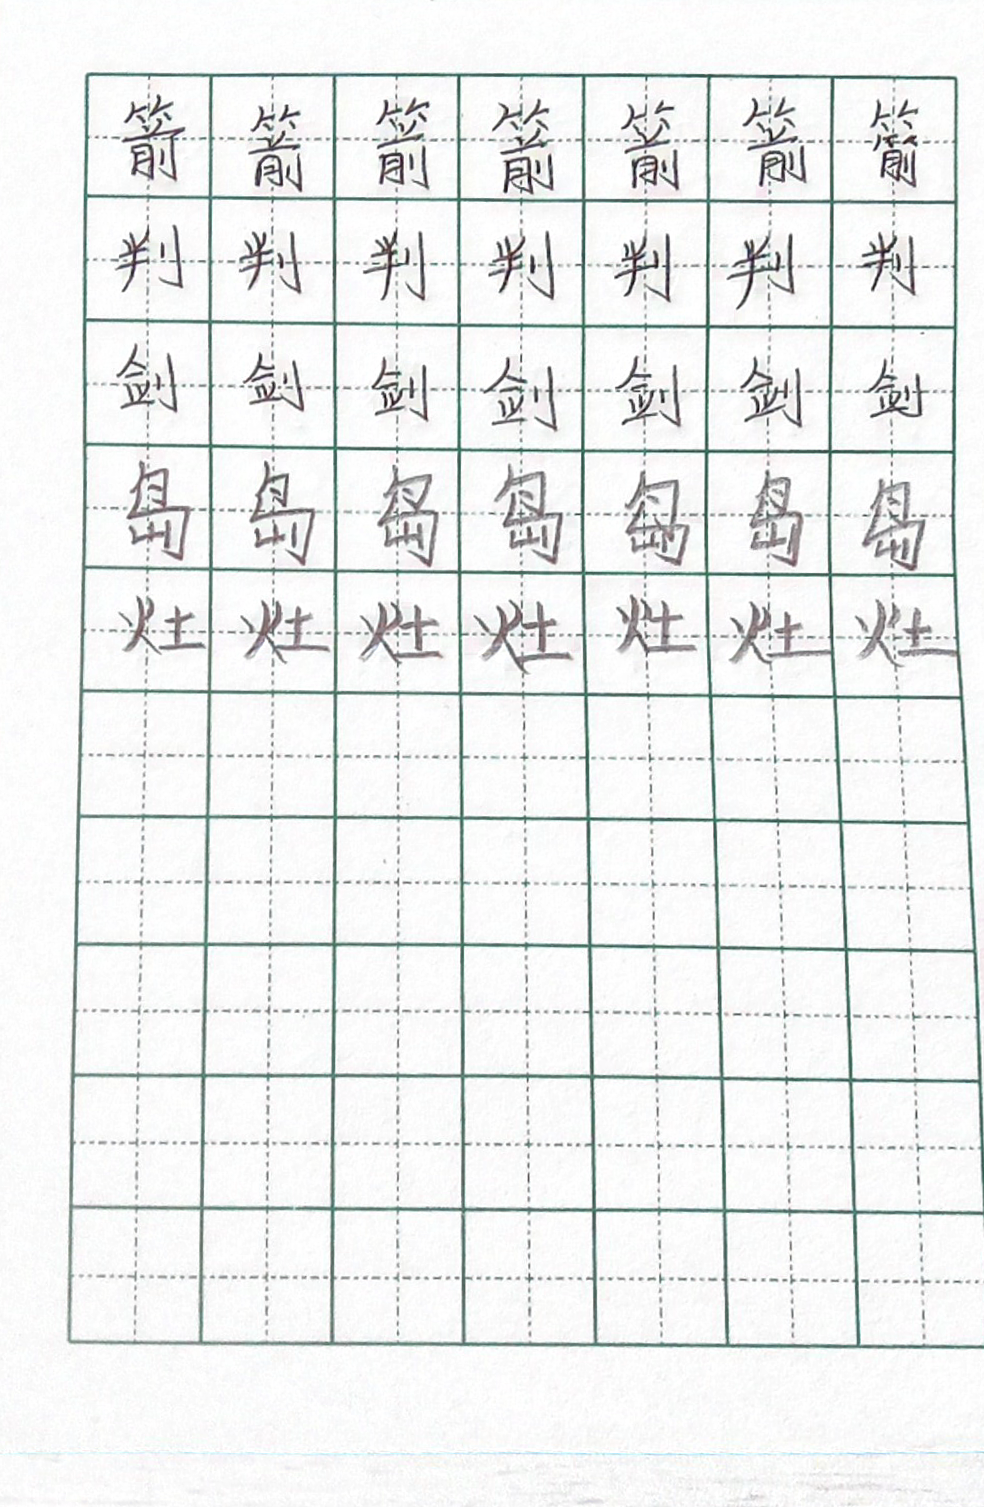 箭箭箭箭箭箭箭
判判判判判判判
剑剑剑剑剑剑剑
岛岛岛岛岛岛岛
灶灶灶灶灶灶灶